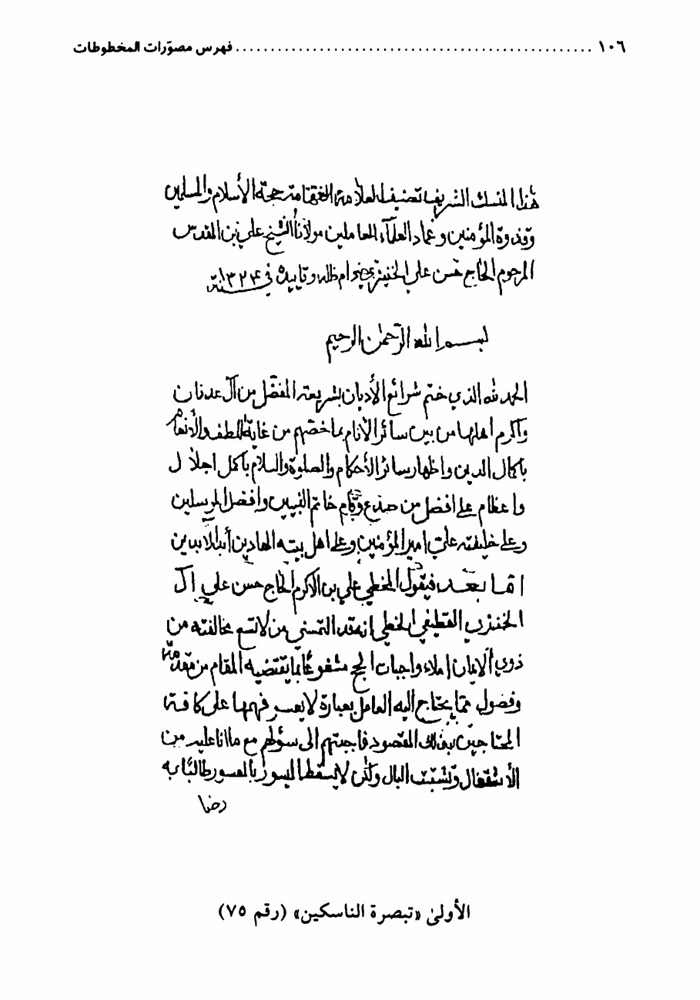 ١٠٦ ................................................ فهرس مصوّرات المخطوطات
هذا المنسك الشريف تصنيف العلامة الفهامة حجة الأسلام والمسلمين
وقدوة المؤمنين وعماد العلمآء العاملين مولانا الشيخ علي بن المقدس
المرحوم الحاج حسن علي الخنيزي دام ظله وتاييده في سنة ١٣٢٤
بسم الله الرحمن الرحيم
الحمد لله الذي ختم شرائع الأديان بشريعة المفضّل من آل عدنان
واكرم اهلها من بين سائر الأنام بما خصّهم من غاية اللطف والأنعام
باكمال الدين واظهار سائر الأحكام والصلوة والسلام باكمل اجلال
واعظام على افضل من صدع وقام خاتم النبيين وافضل المرسلين
وعلى خليفته عليّ امير المؤمنين وعلى اهل بيته الهادين أبد الآبدين
امّا بعد فيقول المخطي علي بن الاكرم الحاج حسن علي آل
الخنيزي القطيفي الخطي انه قد التمسني من لا تسع مخالفته من
ذوي الايمان املاء واجبات الحج مشفوعًا بما يقتضيه المقام من مقدمة
وفصول ممّا يحتاج اليه العامل بعبارة لا يعسر فهمها على كافة
المحتاجين بذلك المقصود فاجبتهم الى سؤلهم مع ما انا عليه من
الأشتغال وتشتّت البال ولكن لا يسقط الميسور بالمعسور طالبًا به
رضا
الأولىٰ «تبصرة الناسكين» (رقم ٧٥)